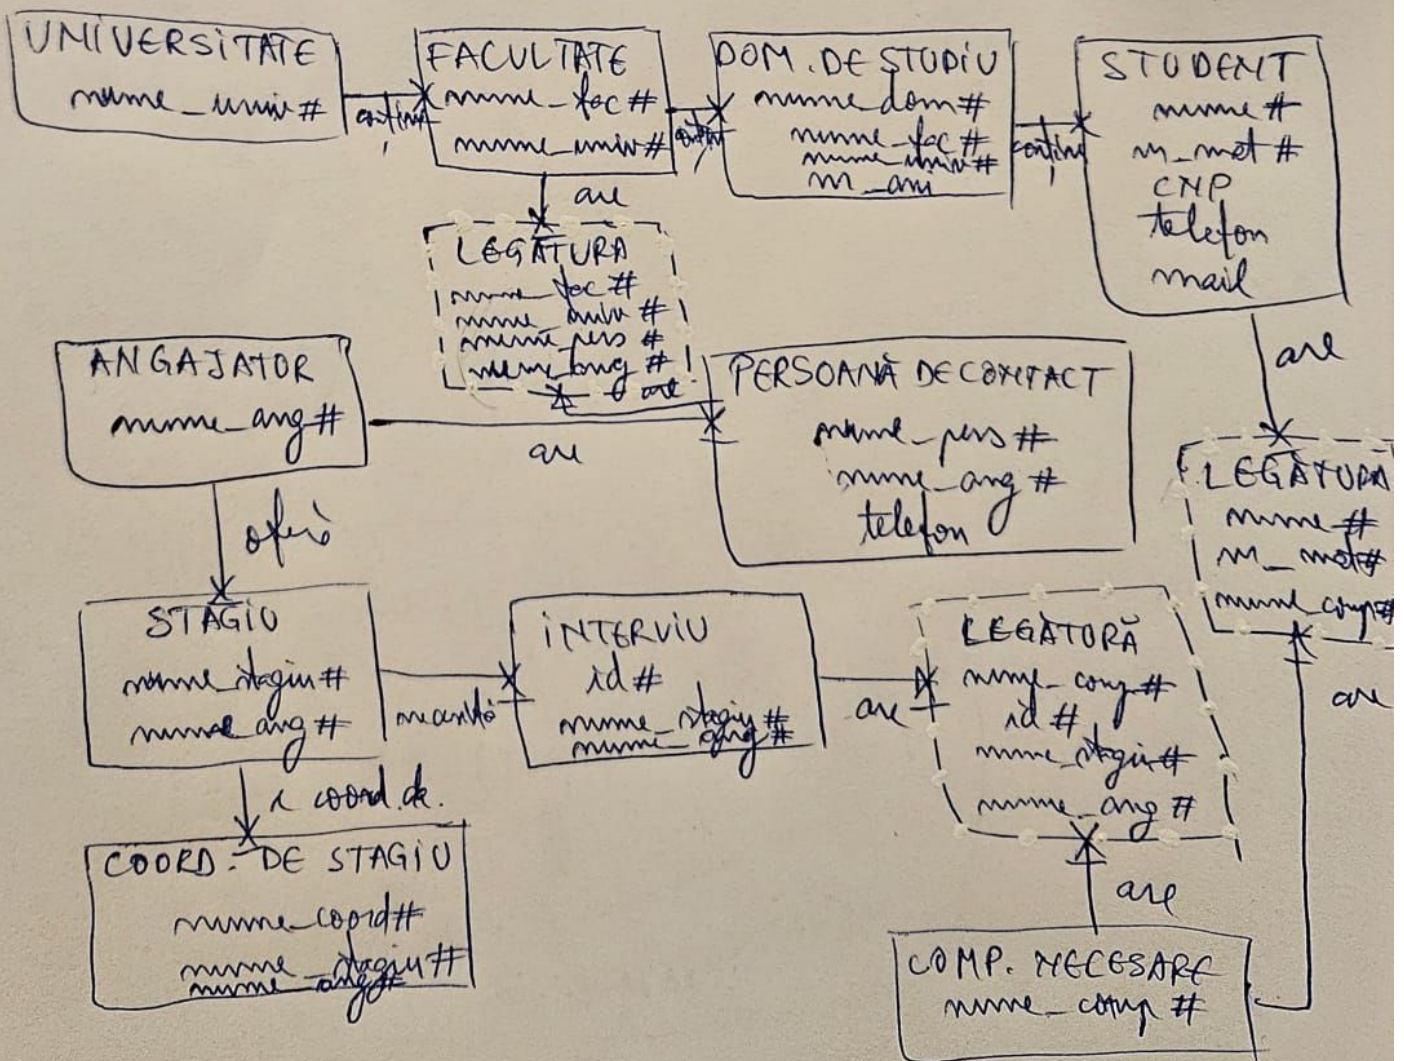 UNIVERSITATE
nume_univ #
conține
FACULTATE
nume_fac #
nume_univ #
conține
DOM. DE STUDIU
nume_dom #
nume_fac #
nume_univ #
nr_ani
conține
STUDENT
nume #
nr_mat #
CNP
telefon
mail
are
LEGĂTURĂ
nume_fac #
nume_univ #
nume_pers #
nume_ang #
are
ANGAJATOR
nume_ang #
are
PERSOANĂ DE CONTACT
nume_pers #
nume_ang #
telefon
are
LEGĂTURĂ
nume #
nr_mat #
nume_comp #
are
oferă
STAGIU
nume_stagiu #
nume_ang #
necesită
INTERVIU
id #
nume_stagiu #
nume_ang #
are
LEGĂTURĂ
nume_comp #
id #
nume_stagiu #
nume_ang #
coord. de.
COORD. DE STAGIU
nume_coord #
nume_stagiu #
nume_ang #
are
COMP. NECESARE
nume_comp #